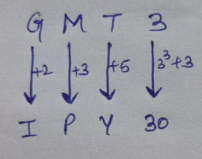 G M T 3
+2 +3 +5 3³+3
I P Y 30